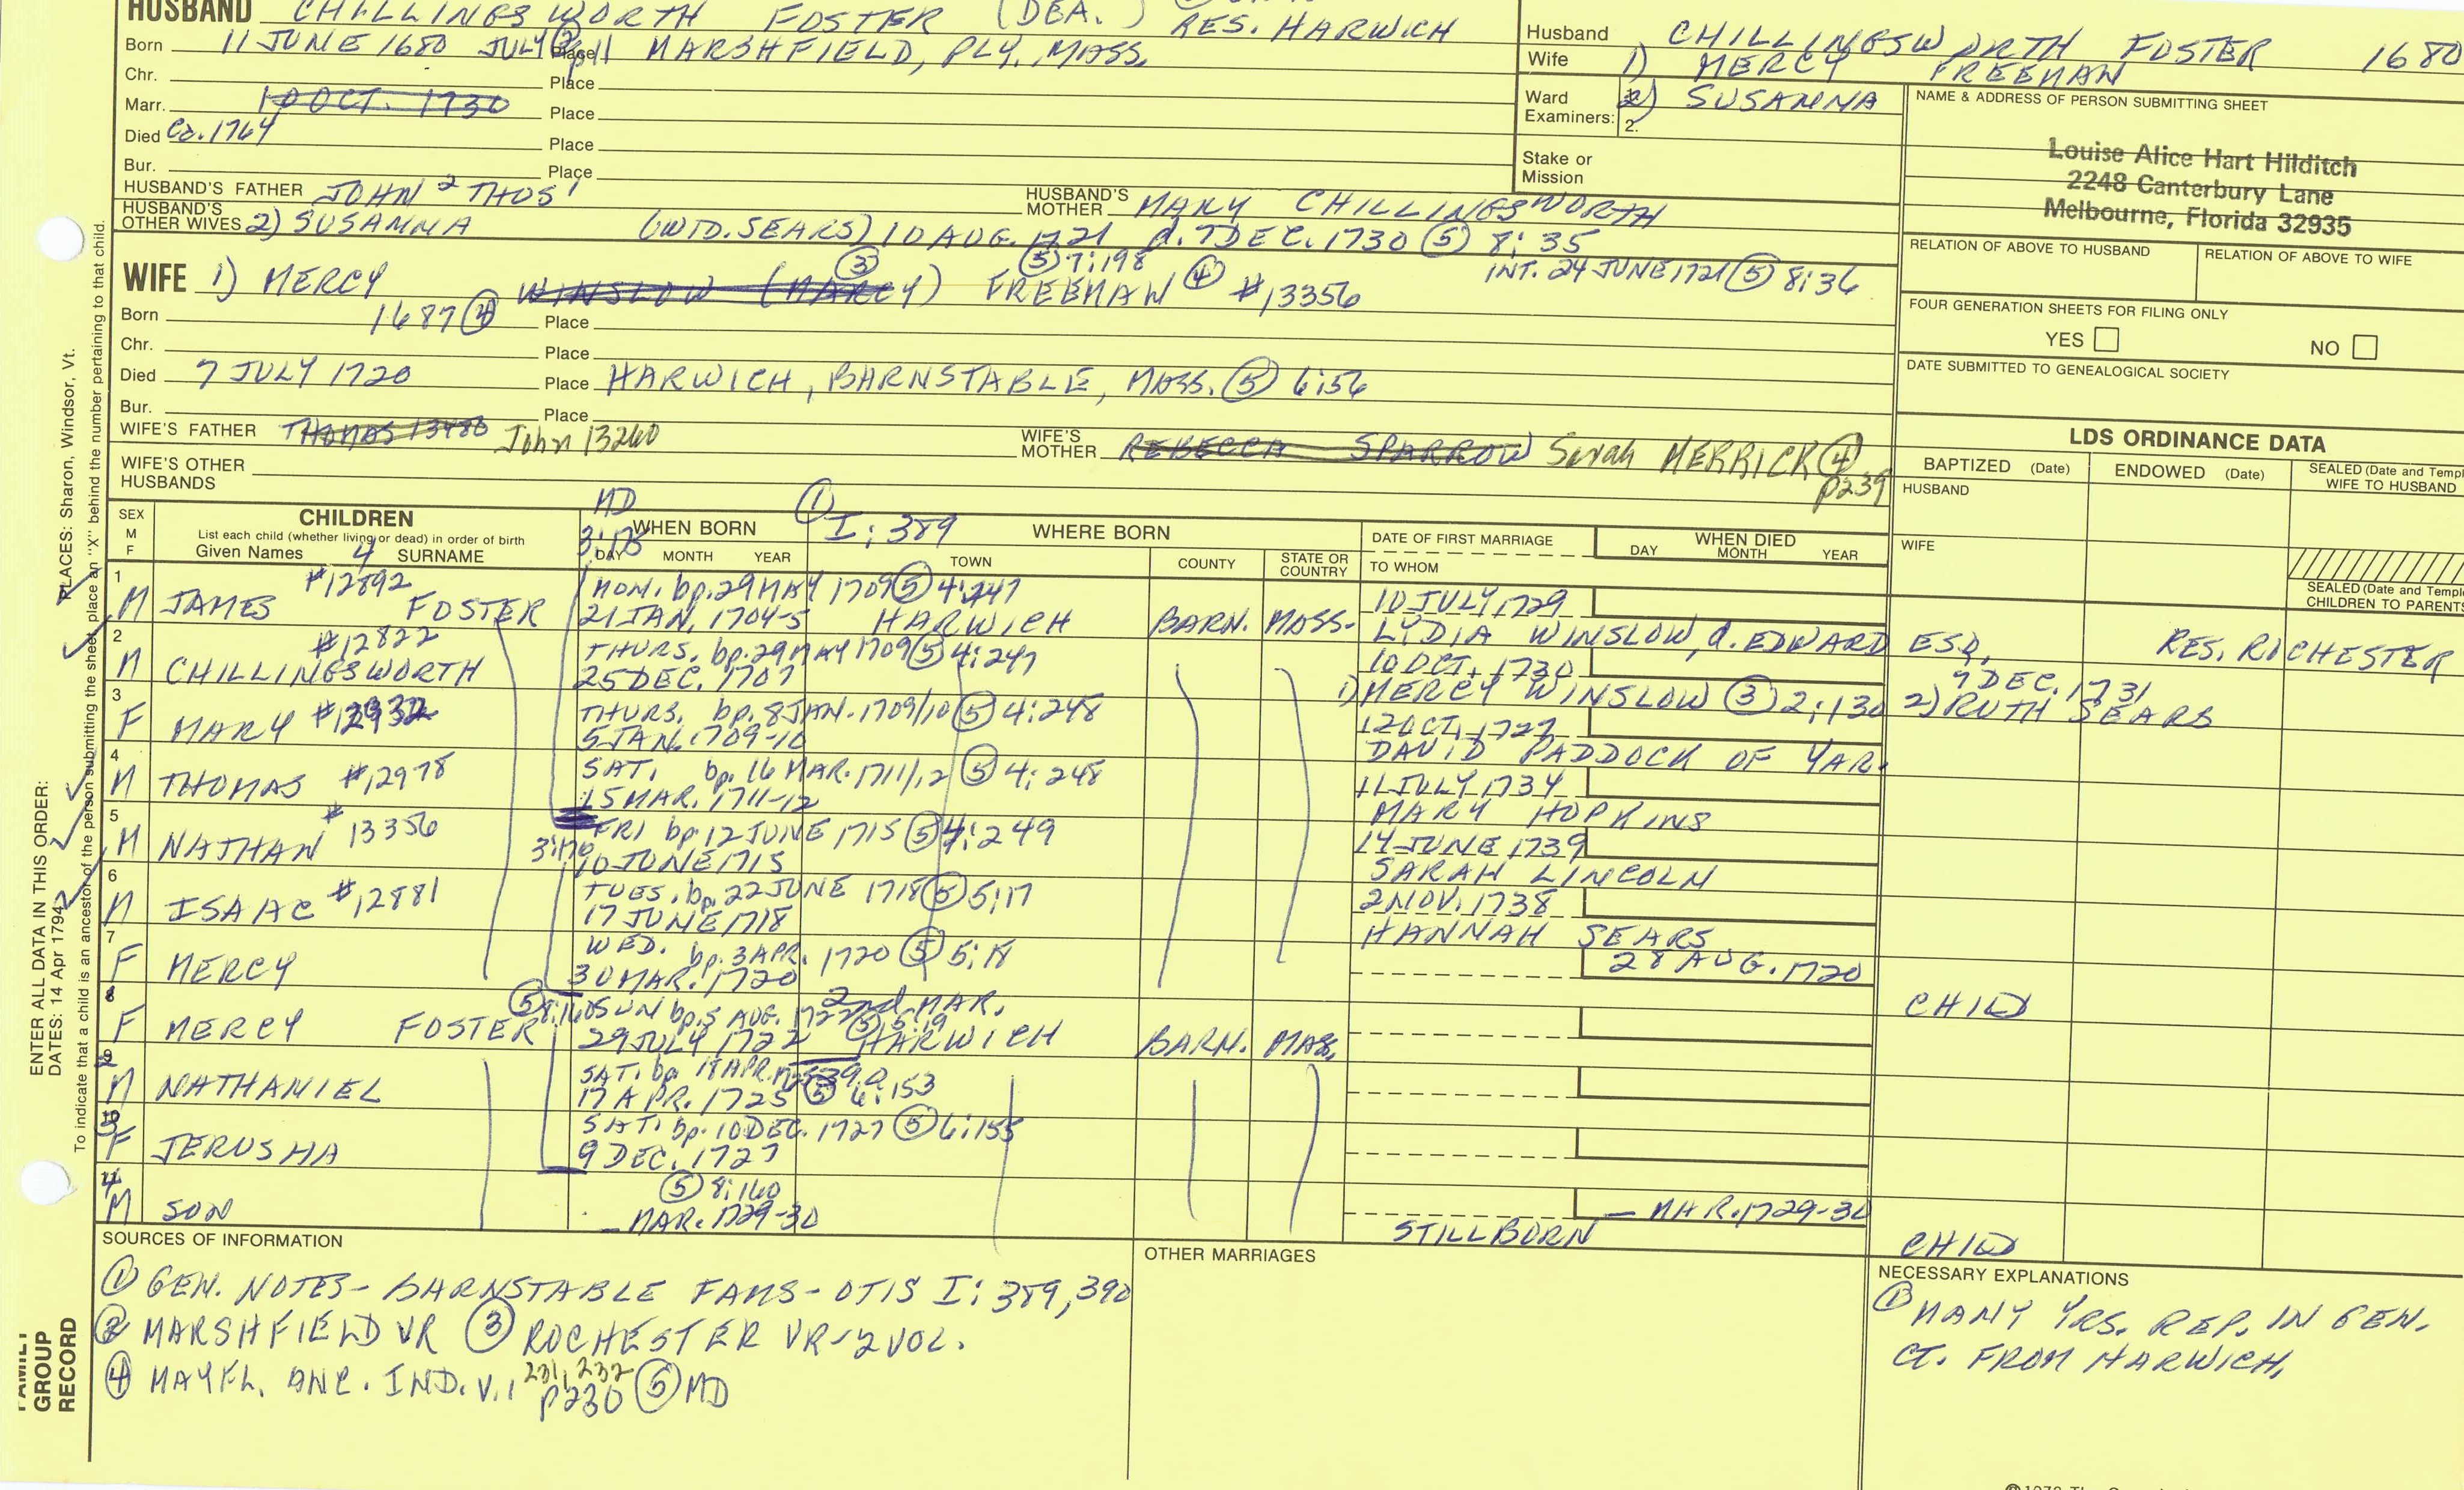 HUSBAND CHILLINGSWORTH FOSTER (DEA.) RES. HARWICH
Born 11 JUNE 1680 JULY Place MARSHFIELD, PLY. MASS.
Chr. Place
Marr. 10 OCT. 1730 Place
Died Ca. 1764 Place
Bur. Place
HUSBAND'S FATHER JOHN 2 THOS 1 HUSBAND'S MOTHER MARY CHILLINGSWORTH
HUSBAND'S OTHER WIVES 2) SUSANNA (WID. SEARS) 10 AUG. 1721 d. 7 DEC. 1730 (5) 8:35
(3) (5) 7:198 INT. 24 JUNE 1721 (5) 8:36
WIFE 1) MERCY WINSLOW (MARCY) FREEMAN (4) #13356
Born 1687 (4) Place
Chr. Place
Died 7 JULY 1720 Place HARWICH, BARNSTABLE, MASS. (5) 6:56
Bur. Place
WIFE'S FATHER THOMAS 13480 John 13260 WIFE'S MOTHER REBECCA SPARROW Sarah MERRICK (4) p239
WIFE'S OTHER HUSBANDS
Husband CHILLINGSWORTH FOSTER 1680
Wife 1) MERCY FREEMAN
Ward Examiners: 2) SUSANNA
2.
Stake or Mission
NAME & ADDRESS OF PERSON SUBMITTING SHEET
Louise Alice Hart Hilditch
2248 Canterbury Lane
Melbourne, Florida 32935
RELATION OF ABOVE TO HUSBAND RELATION OF ABOVE TO WIFE
FOUR GENERATION SHEETS FOR FILING ONLY
YES NO
DATE SUBMITTED TO GENEALOGICAL SOCIETY
LDS ORDINANCE DATA
BAPTIZED (Date) ENDOWED (Date) SEALED (Date and Templ
WIFE TO HUSBAND
HUSBAND
WIFE
SEALED (Date and Templ
CHILDREN TO PARENTS
MD (1) I: 389
SEX M F CHILDREN WHEN BORN WHERE BORN DATE OF FIRST MARRIAGE WHEN DIED
List each child (whether living or dead) in order of birth
Given Names 4 SURNAME DAY MONTH YEAR TOWN COUNTY STATE OR COUNTRY TO WHOM DAY MONTH YEAR
1 #12892 MON. bp. 29 MAY 1709 (5) 4:247 10 JULY 1729
M JAMES FOSTER 21 JAN. 1704-5 HARWICH BARN. MASS. LYDIA WINSLOW, d. EDWARD ESQ. RES. ROCHESTER
2 #12822 THURS. bp. 29 MAY 1709 (5) 4:247 10 OCT. 1730 9 DEC. 1731
M CHILLINGSWORTH 25 DEC. 1707 1) MERCY WINSLOW (3) 2:130 2) RUTH SEARS
3 THURS. bp. 8 JAN. 1709/10 (5) 4:248 12 OCT. 1727
F MARY #12932 5 JAN. 1709-10 DAVID PADDOCK OF YAR.
4 SAT. bp. 16 MAR. 1711/12 (5) 4:248 11 JULY 1734
M THOMAS #12978 15 MAR. 1711-12 MARY HOPKINS
5 # 13356 FRI bp. 12 JUNE 1715 (5) 4:249 14 JUNE 1739
M NATHAN 10 JUNE 1715 SARAH LINCOLN
6 TUES. bp. 22 JUNE 1718 (5) 5:17 2 NOV. 1738
M ISAAC #12881 17 JUNE 1718 HANNAH SEARS
7 WED. bp. 3 APR. 1720 (5) 5:18
F MERCY 30 MAR. 1720 28 AUG. 1720 CHILD
8 SUN bp. 5 AUG. 1722 (5) 5:19 2nd MAR.
F MERCY FOSTER 29 JULY 1722 HARWICH BARN. MASS.
9 SAT. bp 18 APR.
M NATHANIEL 17 APR. 1725 (5) 6:153
SAT. bp. 10 DEC. 1727 (5) 6:155
F JERUSHA 9 DEC. 1727
(5) 8:160
M SON MAR. 1729-30 STILLBORN MAR. 1729-30 CHILD
SOURCES OF INFORMATION
(1) GEN. NOTES - BARNSTABLE FAMS - OTIS I: 389, 390
(2) MARSHFIELD VR (3) ROCHESTER VR - 2 VOL.
(4) MAYFL. ANC. IND. V.1 231, 232 p230 (5) MD
OTHER MARRIAGES
NECESSARY EXPLANATIONS
(1) MANY YRS. REP. IN GEN.
CT. FROM HARWICH.
ENTER ALL DATA IN THIS ORDER:
DATES: 14 Apr 1794 PLACES: Sharon, Windsor, Vt.
To indicate that a child is an ancestor of the person submitting the sheet, place an "X" behind the number pertaining to that child.
FAMILY GROUP RECORD